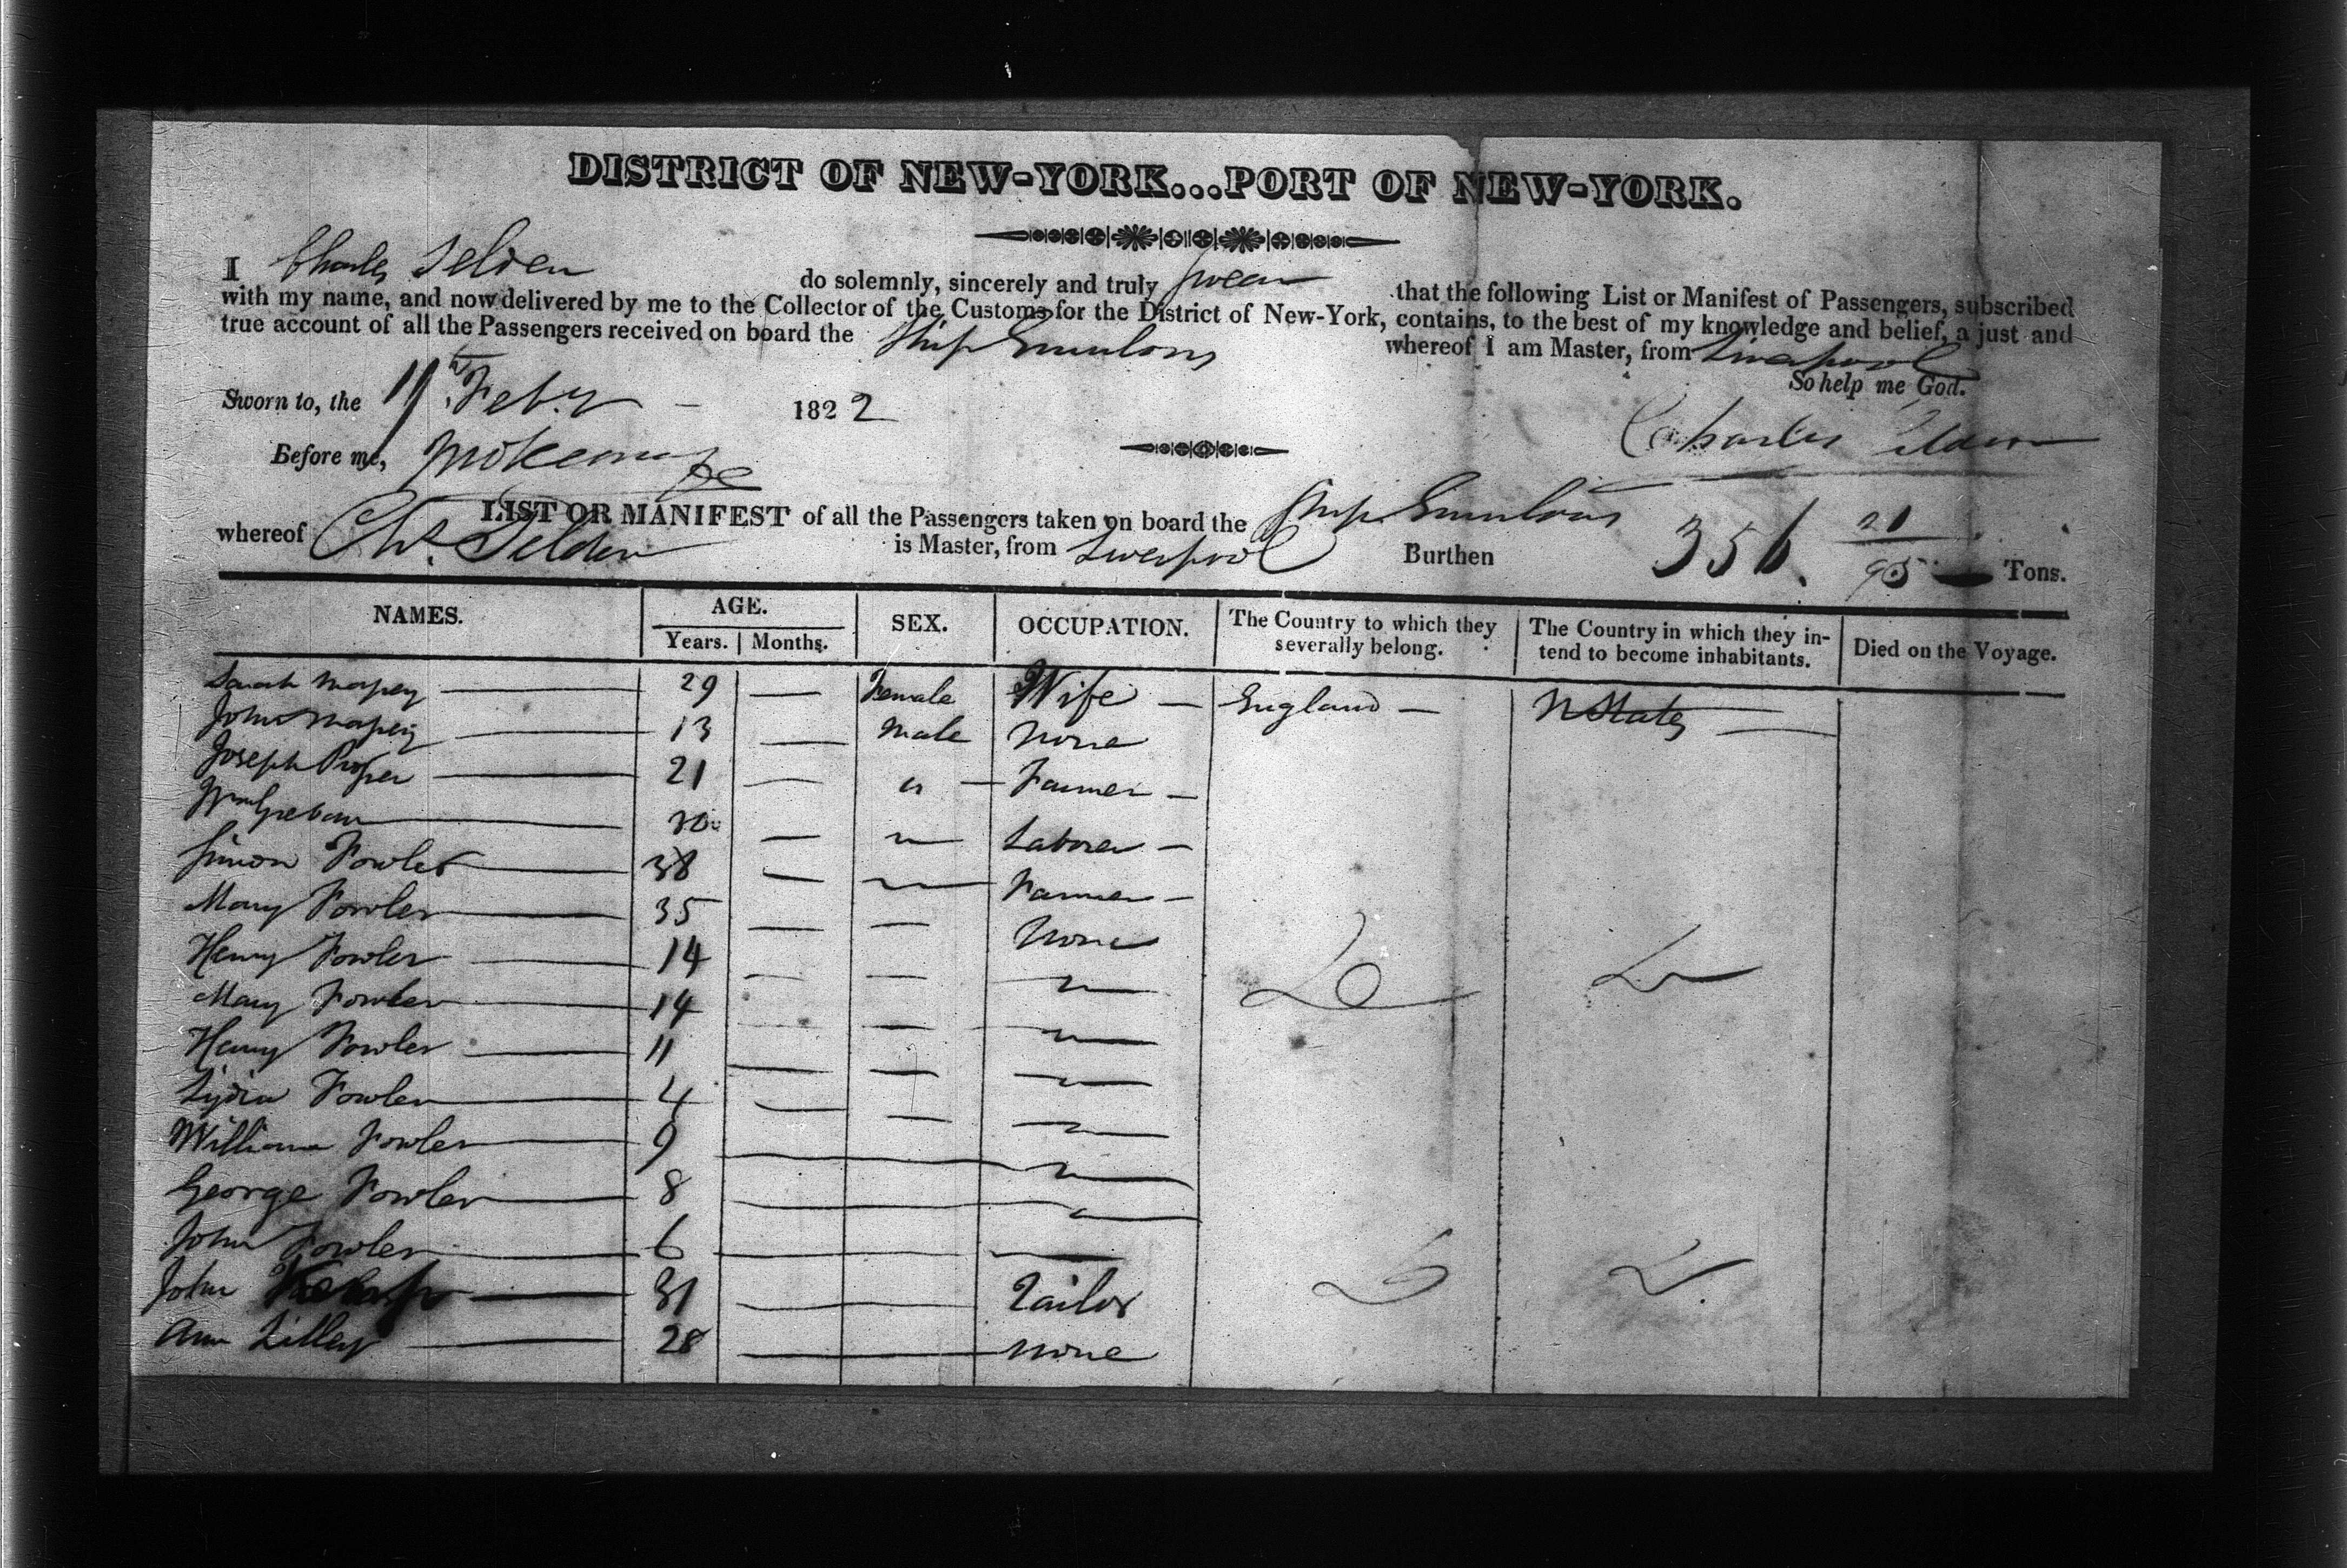 DISTRICT OF NEW-YORK...PORT OF NEW-YORK.
I Charles Selden do solemnly, sincerely and truly swear that the following List or Manifest of Passengers, subscribed
with my name, and now delivered by me to the Collector of the Customs for the District of New-York, contains, to the best of my knowledge and belief, a just and
true account of all the Passengers received on board the Ship Emulous whereof I am Master, from Liverpool
So help me God.
Sworn to, the 11th Feby 1822
Charles Selden
Before me,
LIST OR MANIFEST of all the Passengers taken on board the Ship Emulous
whereof Chs. Selden is Master, from Liverpool Burthen 356. 21/95 Tons.
NAMES. AGE. SEX. OCCUPATION. The Country to which they severally belong. The Country in which they intend to become inhabitants. Died on the Voyage.
Years. Months.
Sarah 29 — Female Wife — England — UStates —
John 13 — Male None
Joseph 21 — " — Farmer —
Wm 20 — " Laborer —
Simon Fowler 38 — " Farmer —
Mary Fowler 35 — — None
Henry Fowler 14 — — " Do Do
Mary Fowler 14 — — "
Henry Fowler 11 — — "
Lydia Fowler 4 — — "
William Fowler 9 — "
George Fowler 8 — "
John Fowler 6 —
John 31 — Tailor Do Do
Ann Lilley 28 — None